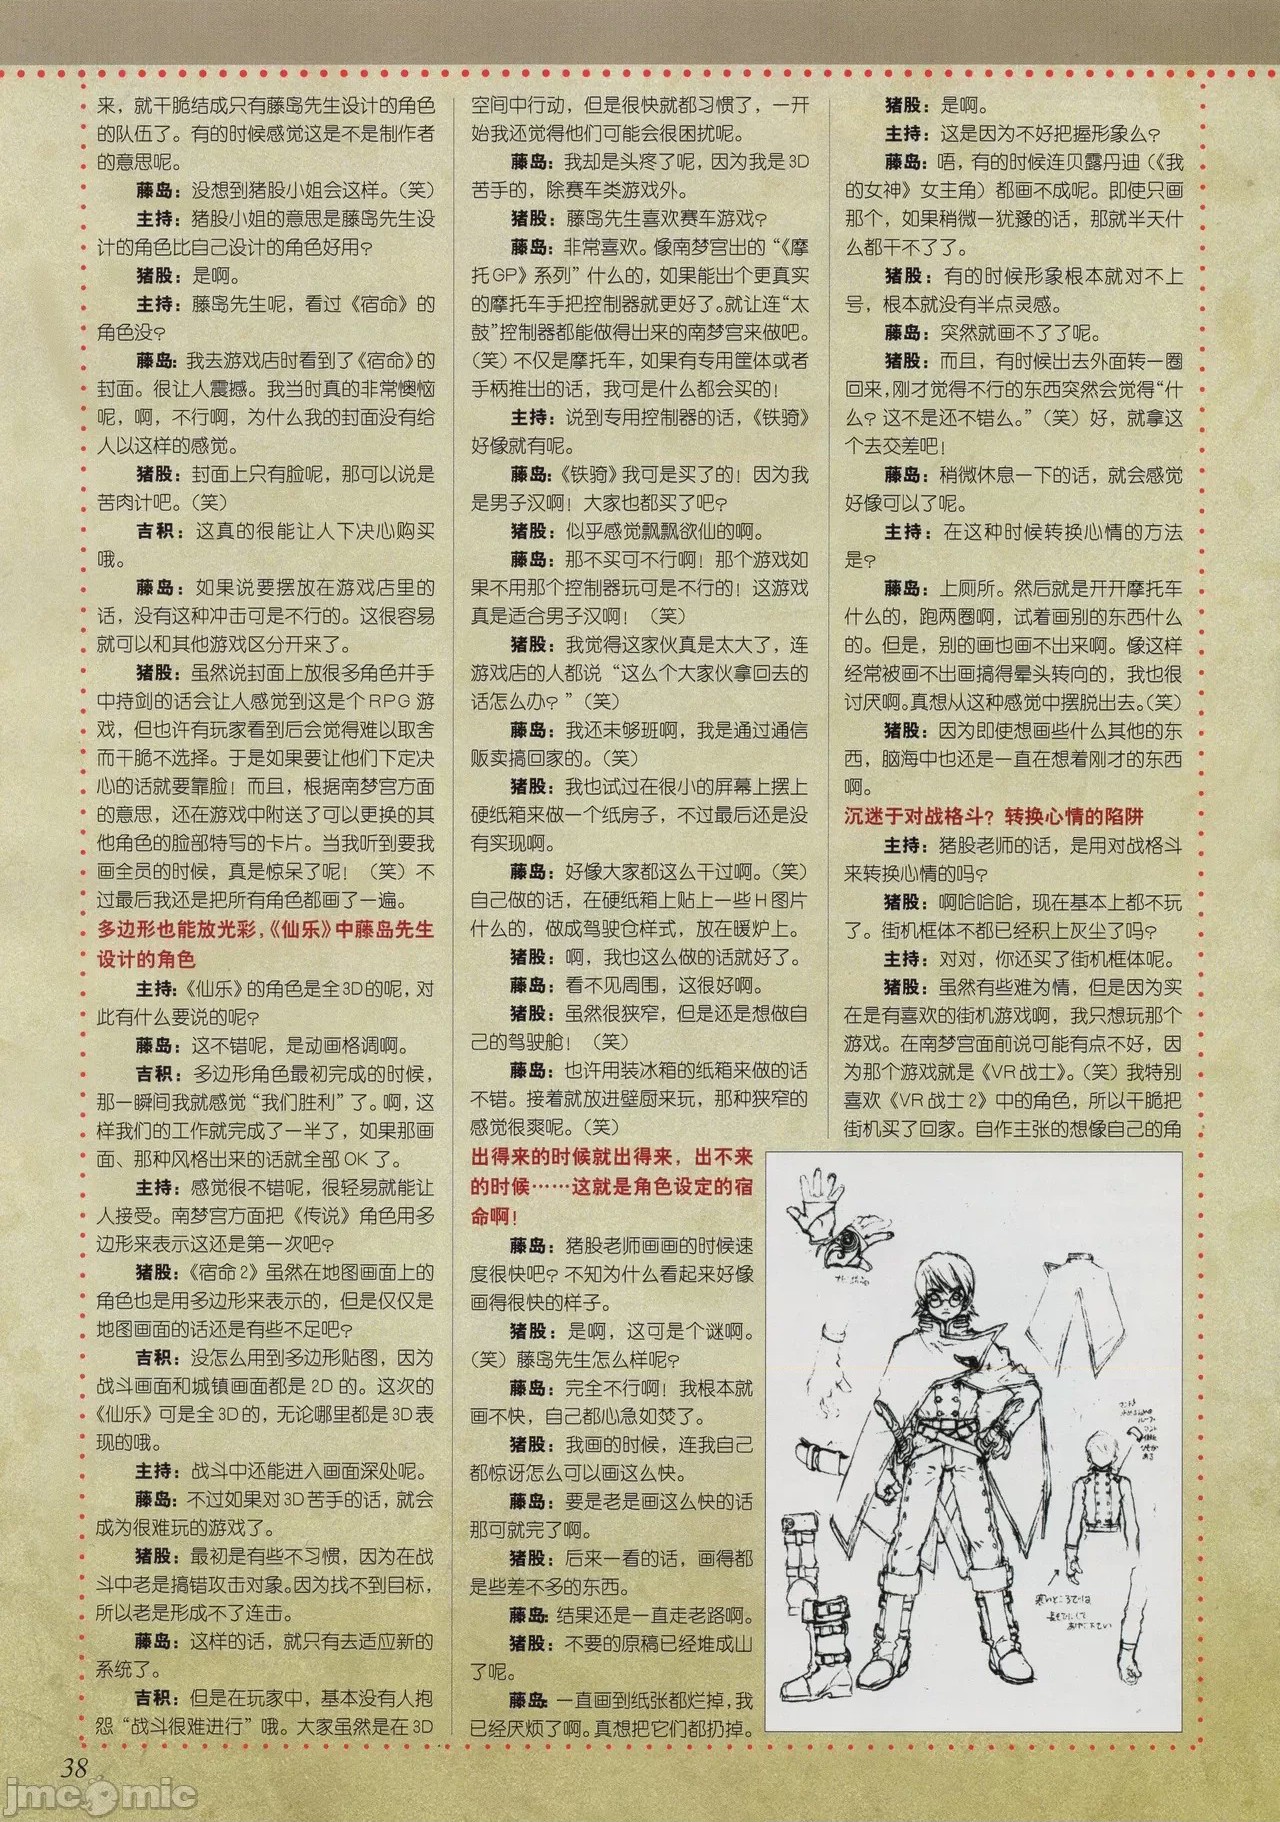 来，就干脆结成只有藤岛先生设计的角色
的队伍了。有的时候感觉这是不是制作者
的意思呢。
藤岛：没想到猪股小姐会这样。（笑）
主持：猪股小姐的意思是藤岛先生设
计的角色比自己设计的角色好用？
猪股：是啊。
主持：藤岛先生呢，看过《宿命》的
角色没？
藤岛：我去游戏店时看到了《宿命》的
封面。很让人震撼。我当时真的非常懊恼
呢，啊，不行啊，为什么我的封面没有给
人以这样的感觉。
猪股：封面上只有脸呢，那可以说是
苦肉计吧。（笑）
吉积：这真的很能让人下决心购买
哦。
藤岛：如果说要摆放在游戏店里的
话，没有这种冲击可是不行的。这很容易
就可以和其他游戏区分开来了。
猪股：虽然说封面上放很多角色并手
中持剑的话会让人感觉到这是个RPG游
戏，但也许有玩家看到后会觉得难以取舍
而干脆不选择。于是如果要让他们下定决
心的话就要靠脸！而且，根据南梦宫方面
的意思，还在游戏中附送了可以更换的其
他角色的脸部特写的卡片。当我听到要我
画全员的时候，真是惊呆了呢！（笑）不
过最后我还是把所有角色都画了一遍。
多边形也能放光彩，《仙乐》中藤岛先生
设计的角色
主持：《仙乐》的角色是全3D的呢，对
此有什么要说的呢？
藤岛：这不错呢，是动画格调啊。
吉积：多边形角色最初完成的时候，
那一瞬间我就感觉“我们胜利”了。啊，这
样我们的工作就完成了一半了，如果那画
面、那种风格出来的话就全部OK了。
主持：感觉很不错呢，很轻易就能让
人接受。南梦宫方面把《传说》角色用多
边形来表示这还是第一次吧？
猪股：《宿命2》虽然在地图画面上的
角色也是用多边形来表示的，但是仅仅是
地图画面的话还是有些不足吧？
吉积：没怎么用到多边形贴图，因为
战斗画面和城镇画面都是2D的。这次的
《仙乐》可是全3D的，无论哪里都是3D表
现的哦。
主持：战斗中还能进入画面深处呢。
藤岛：不过如果对3D苦手的话，就会
成为很难玩的游戏了。
猪股：最初是有些不习惯，因为在战
斗中老是搞错攻击对象。因为找不到目标，
所以老是形成不了连击。
藤岛：这样的话，就只有去适应新的
系统了。
吉积：但是在玩家中，基本没有人抱
怨“战斗很难进行”哦。大家虽然是在3D
空间中行动，但是很快就都习惯了，一开
始我还觉得他们可能会很困扰呢。
藤岛：我却是头疼了呢，因为我是3D
苦手的，除赛车类游戏外。
猪股：藤岛先生喜欢赛车游戏？
藤岛：非常喜欢。像南梦宫出的“《摩
托GP》系列”什么的，如果能出个更真实
的摩托车手把控制器就更好了。就让连“太
鼓”控制器都能做得出来的南梦宫来做吧。
（笑）不仅是摩托车，如果有专用筐体或者
手柄推出的话，我可是什么都会买的！
主持：说到专用控制器的话，《铁骑》
好像就有呢。
藤岛：《铁骑》我可是买了的！因为我
是男子汉啊！大家也都买了吧？
猪股：似乎感觉飘飘欲仙的啊。
藤岛：那不买可不行啊！那个游戏如
果不用那个控制器玩可是不行的！这游戏
真是适合男子汉啊！（笑）
猪股：我觉得这家伙真是太大了，连
游戏店的人都说“这么个大家伙拿回去的
话怎么办？”（笑）
藤岛：我还未够班啊，我是通过通信
贩卖搞回家的。（笑）
猪股：我也试过在很小的屏幕上摆上
硬纸箱来做一个纸房子，不过最后还是没
有实现啊。
藤岛：好像大家都这么干过啊。（笑）
自己做的话，在硬纸箱上贴上一些H图片
什么的，做成驾驶仓样式，放在暖炉上。
猪股：啊，我也这么做的话就好了。
藤岛：看不见周围，这很好啊。
猪股：虽然很狭窄，但是还是想做自
己的驾驶舱！（笑）
藤岛：也许用装冰箱的纸箱来做的话
不错。接着就放进壁厨来玩，那种狭窄的
感觉很爽呢。（笑）
出得来的时候就出得来，出不来
的时候……这就是角色设定的宿
命啊！
藤岛：猪股老师画画的时候速
度很快吧？不知为什么看起来好像
画得很快的样子。
猪股：是啊，这可是个谜啊。
（笑）藤岛先生怎么样呢？
藤岛：完全不行啊！我根本就
画不快，自己都心急如焚了。
猪股：我画的时候，连我自己
都惊讶怎么可以画这么快。
藤岛：要是老是画这么快的话
那可就完了啊。
猪股：后来一看的话，画得都
是些差不多的东西。
藤岛：结果还是一直走老路啊。
猪股：不要的原稿已经堆成山
了呢。
藤岛：一直画到纸张都烂掉，我
已经厌烦了啊。真想把它们都扔掉。
猪股：是啊。
主持：这是因为不好把握形象么？
藤岛：唔，有的时候连贝露丹迪（《我
的女神》女主角）都画不成呢。即使只画
那个，如果稍微一犹豫的话，那就半天什
么都干不了了。
猪股：有的时候形象根本就对不上
号，根本就没有半点灵感。
藤岛：突然就画不了了呢。
猪股：而且，有时候出去外面转一圈
回来，刚才觉得不行的东西突然会觉得“什
么？这不是还不错么。”（笑）好，就拿这
个去交差吧！
藤岛：稍微休息一下的话，就会感觉
好像可以了呢。
主持：在这种时候转换心情的方法
是？
藤岛：上厕所。然后就是开开摩托车
什么的，跑两圈啊，试着画别的东西什么
的。但是，别的画也画不出来啊。像这样
经常被画不出画搞得晕头转向的，我也很
讨厌啊。真想从这种感觉中摆脱出去。（笑）
猪股：因为即使想画些什么其他的东
西，脑海中也还是一直在想着刚才的东西
啊。
沉迷于对战格斗？转换心情的陷阱
主持：猪股老师的话，是用对战格斗
来转换心情的吗？
猪股：啊哈哈哈，现在基本上都不玩
了。街机框体不都已经积上灰尘了吗？
主持：对对，你还买了街机框体呢。
猪股：虽然有些难为情，但是因为实
在是有喜欢的街机游戏啊，我只想玩那个
游戏。在南梦宫面前说可能有点不好，因
为那个游戏就是《VR战士》。（笑）我特别
喜欢《VR战士2》中的角色，所以干脆把
街机买了回家。自作主张的想像自己的角
寒いところでは
38
jmcomic